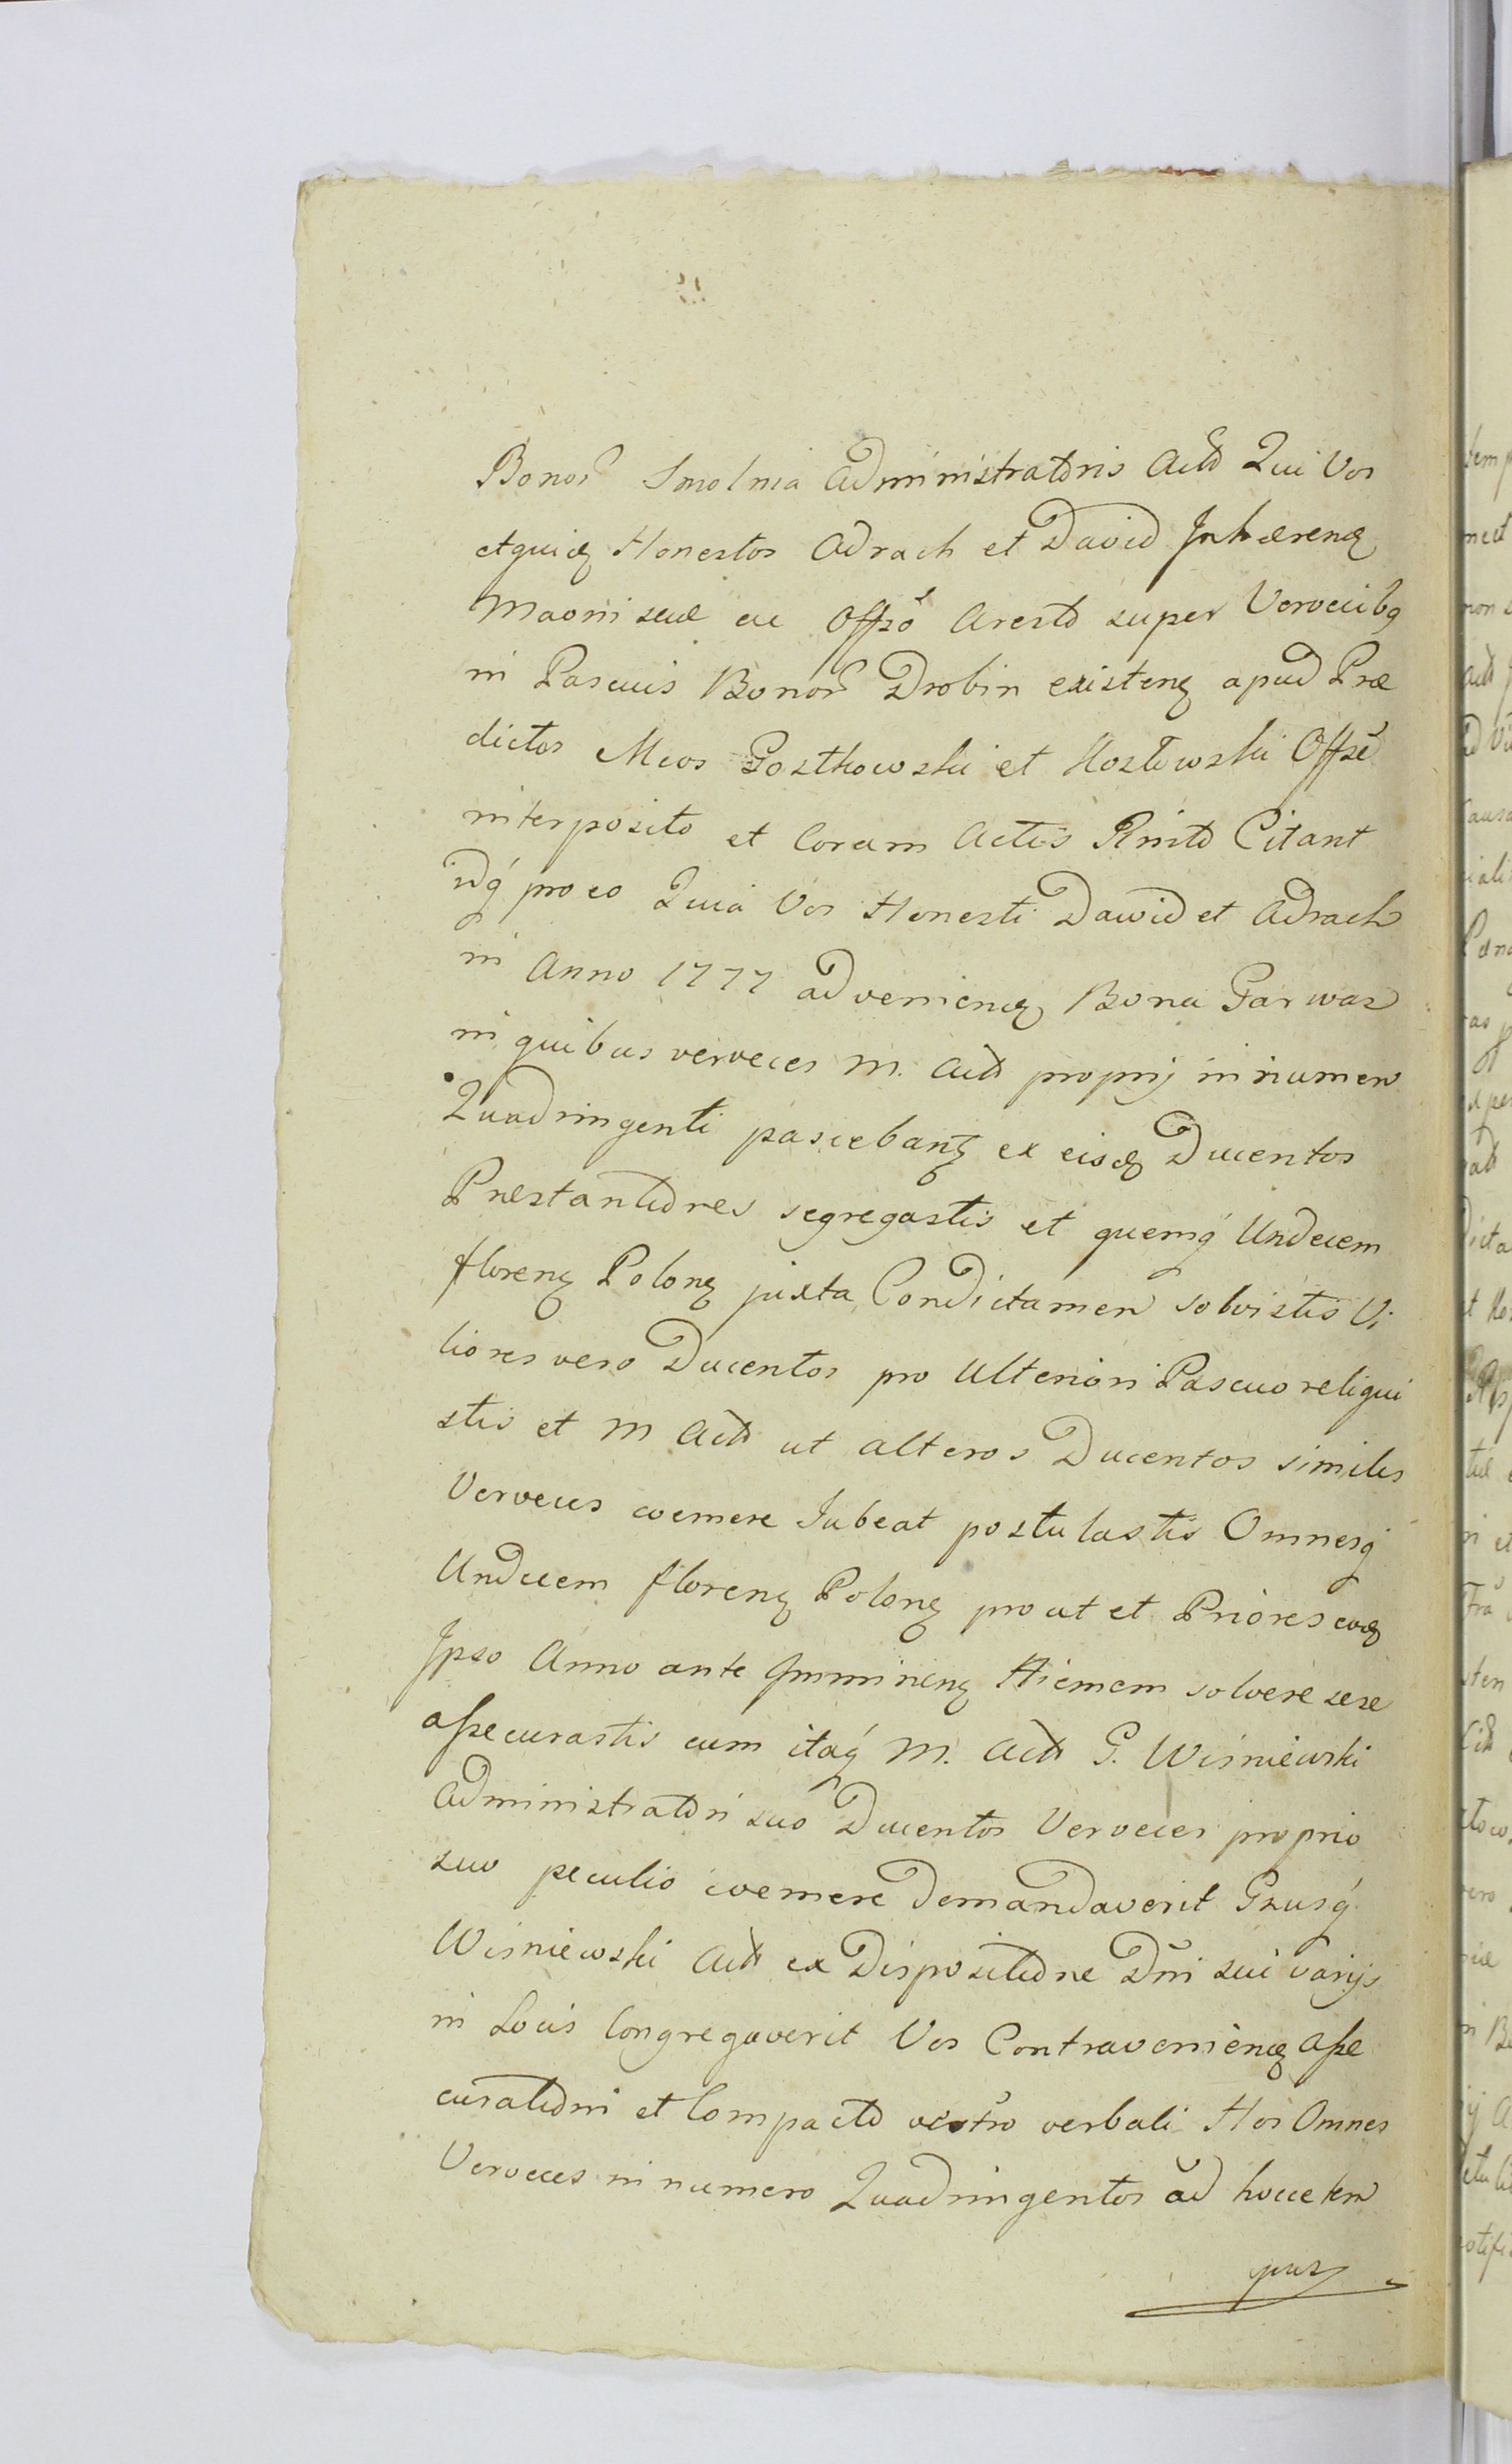 Bonor Smolnia Administratoris Actt Qui Vos
etquidq Honestos Adrach et David Inhærenq
Maoni suæ ac Offso Aresto super Vervecibq
in Pascuis Bonor Drobin existenq apud Præ
dictos Mcos Gostkowski et Kosłowski Offse
interposito et Coram Actis Rnito Citant
idq pro eo Quia Vos Honesti Dawid et Adrach
in Anno 1777 advenienq Bona Garwaz
in quibus verveces M. Actt proprij in numero
Quadringenti pascebanq ex eisdq Ducentos
Præstantiores segregastis et quemq Undecem
florenq Polonq juxta Condictamen solvistis Vi
liores vero Ducentos pro Ulteriori Pascuo reliqui
stis et M Actt ut alteros Ducentos similes
Verveces coemere Jubeat postulastis Omnesq
Undecem florenq Polonq prout et Priores eodq
Ipso Anno ante Imminenq Hiemem solvere sese
assecurastis cum itaq M. Actt G. Wiśniewski
Administratori suo Ducentos Verveces proprio
suo peculio coemere Demandaverit Gsusq
Wiśniewski Actt ex Dispositione Dni sui varijs
in Locis Congregaverit Vos Contravenienq asse
curationi et Compacto vestro verbali Hos Omnes
Verveces in numero Quadringentos ad hocce tem
pus